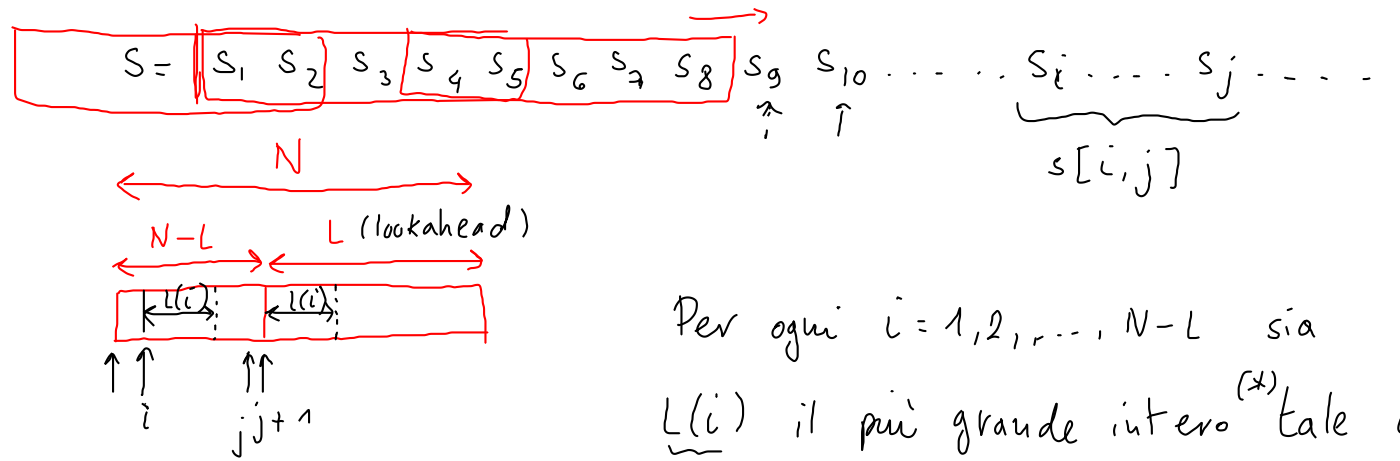 S = S₁ S₂ S₃ S₄ S₅ S₆ S₇ S₈ S₉ S₁₀ ..... .. Sᵢ .... Sⱼ ....
s[i,j]
N
N-L L (lookahead)
L(i) L(i)
i j j+1
Per ogni i = 1,2,..., N-L sia
L(i) il più grande intero (*) tale